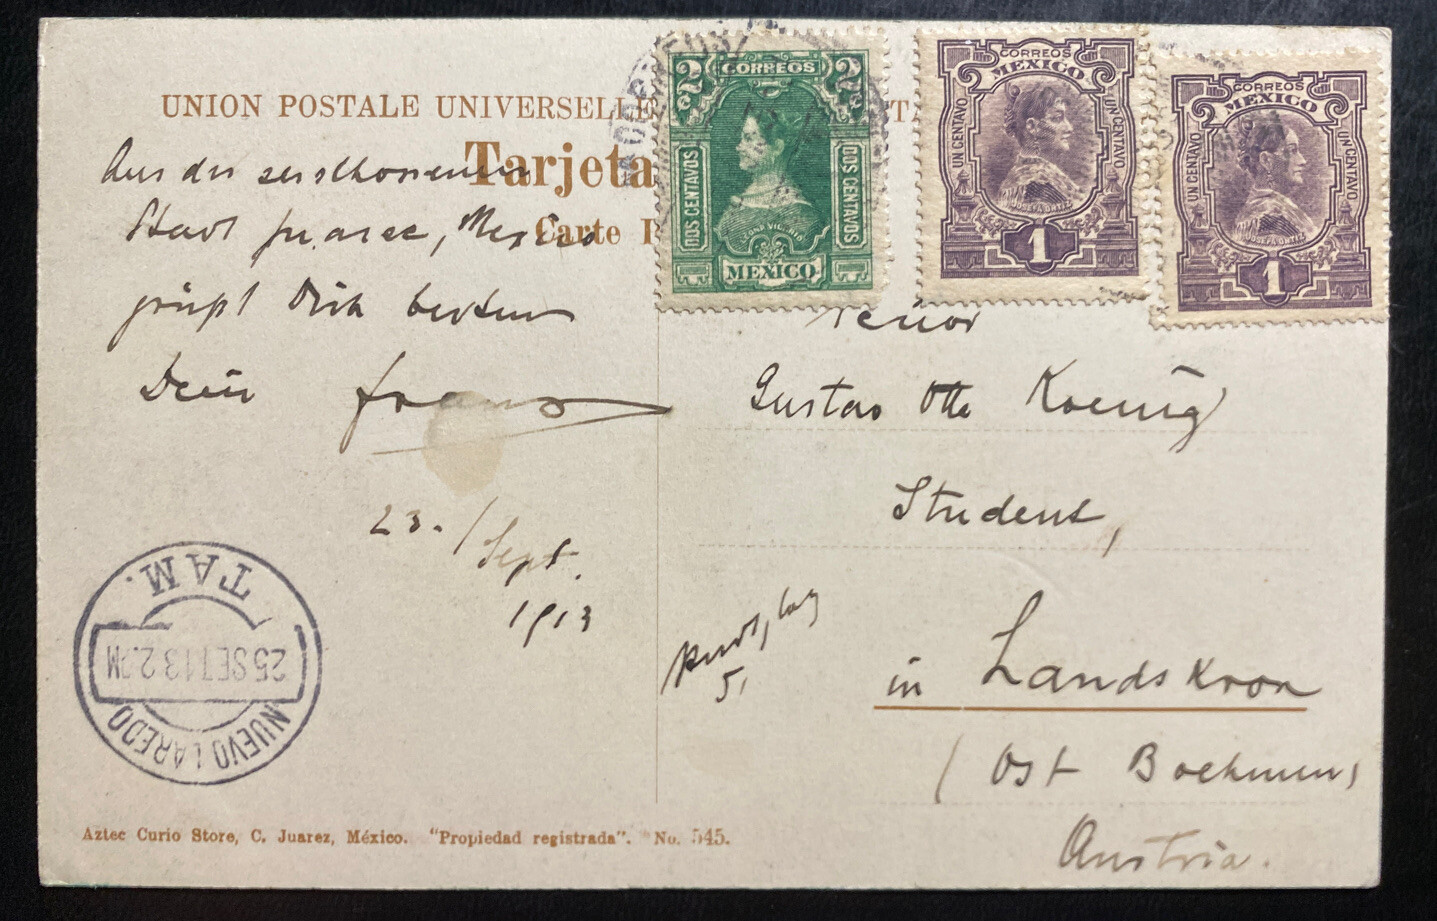 UNION POSTALE UNIVERSELLE
Tarjeta
Carte
Aus der zerschossenen
Stadt Juarez, Mexico
grüßt Dich bestens
Dein Franz
23. / Sept.
1913
CORREOS
2c 2c
DOS CENTAVOS DOS CENTAVOS
LEONA VICARIO
MEXICO
CORREOS
MEXICO
UN CENTAVO UN CENTAVO
JOSEFA ORTIZ
1
CORREOS
MEXICO
UN CENTAVO UN CENTAVO
JOSEFA ORTIZ
1
Señor
Gustav Otto Koenig
Student,
in Landskron
(Ost Boehmen)
Austria.
5,
TAM.
25 SET 13 2. PM
NUEVO LAREDO
Aztec Curio Store, C. Juarez, México. "Propiedad registrada". No. 545.